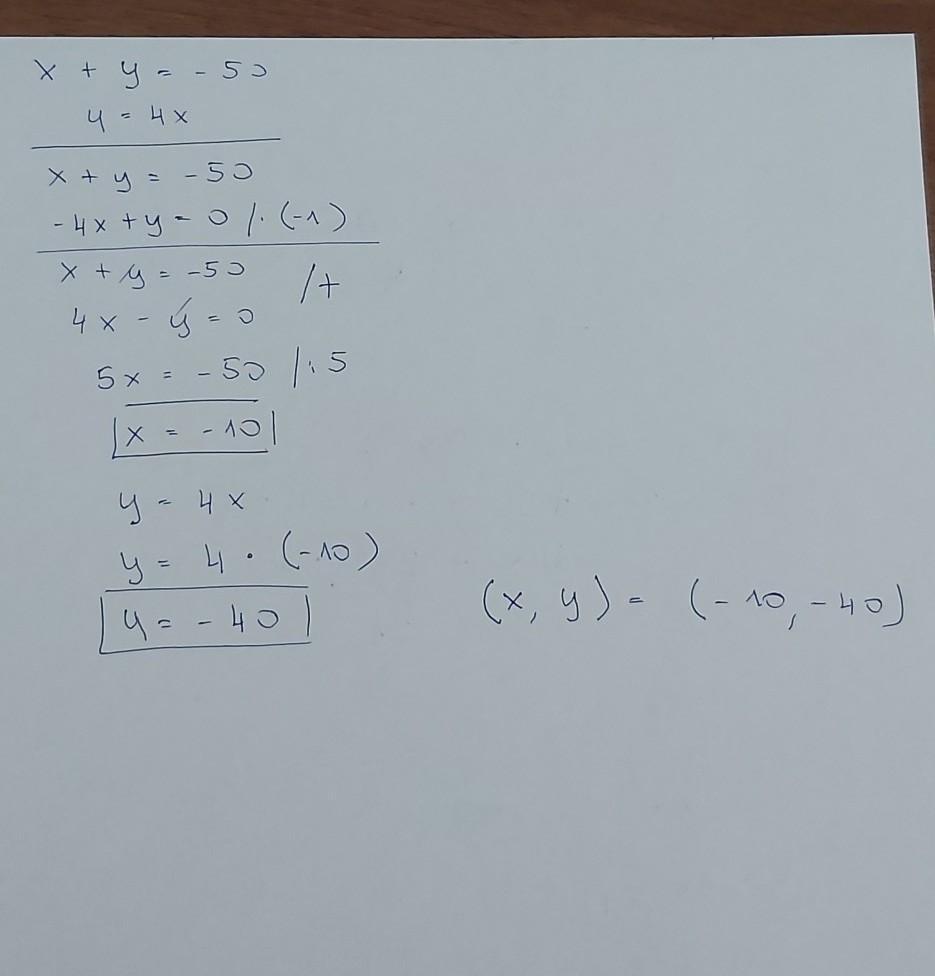 x + y = - 50
y = 4x
x + y = -50
-4x + y = 0 /· (-1)
x + y = -50 /+
4x - y = 0
5x = -50 /: 5
x = -10
y = 4x
y = 4 · (-10)
y = -40
(x, y) = (-10, -40)